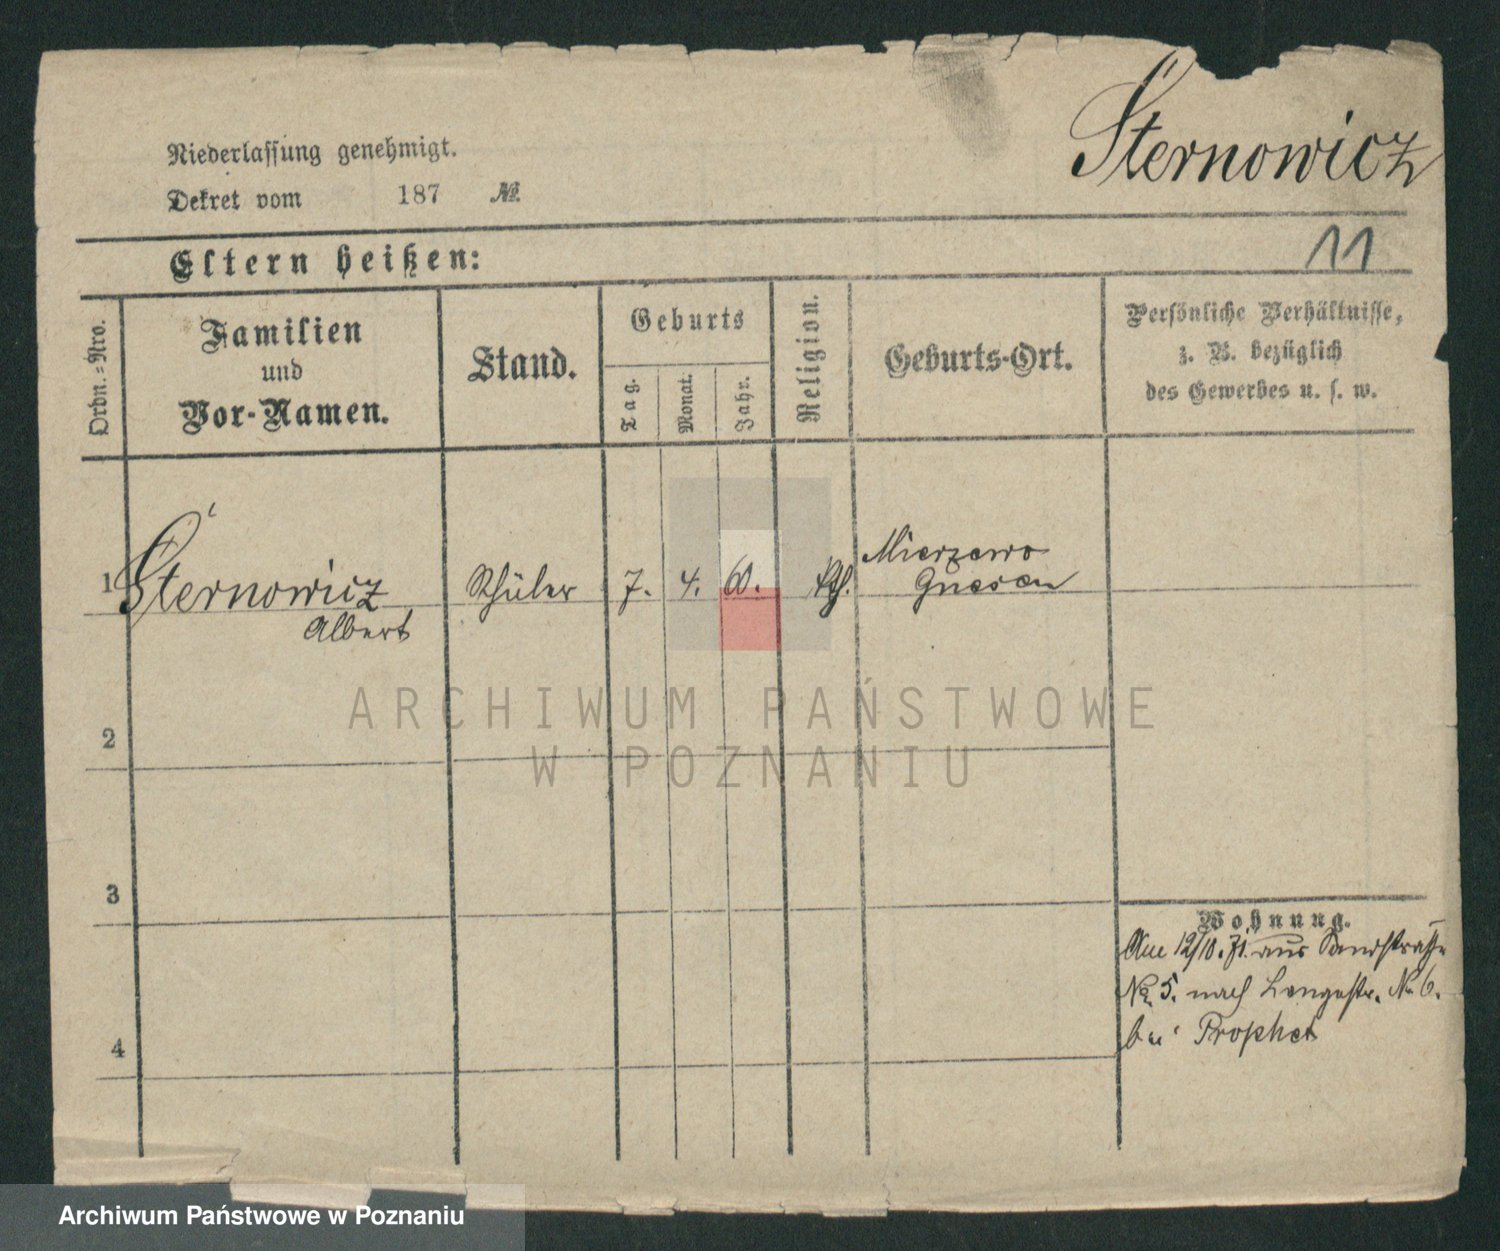 Sternowicz
Niederlassung genehmigt.
Dekret vom 187 №
11
Eltern heißen:
Ordn.=Nro.
Familien
und
Vor-Namen.
Stand.
Geburts
Tag.
Monat.
Jahr.
Religion.
Geburts-Ort.
Persönliche Verhältnisse,
z. B. bezüglich
des Gewerbes u. s. w.
1
Sternowicz
Albert
Schüler
7.
4.
60.
kth.
Mierzewo
Gnesen
2
3
4
Wohnung.
Am 12/10. 71. aus Sandstraße
No. 5. nach Langestr. No 6.
bei Prophet
ARCHIWUM PAŃSTWOWE
W POZNANIU
Archiwum Państwowe w Poznaniu